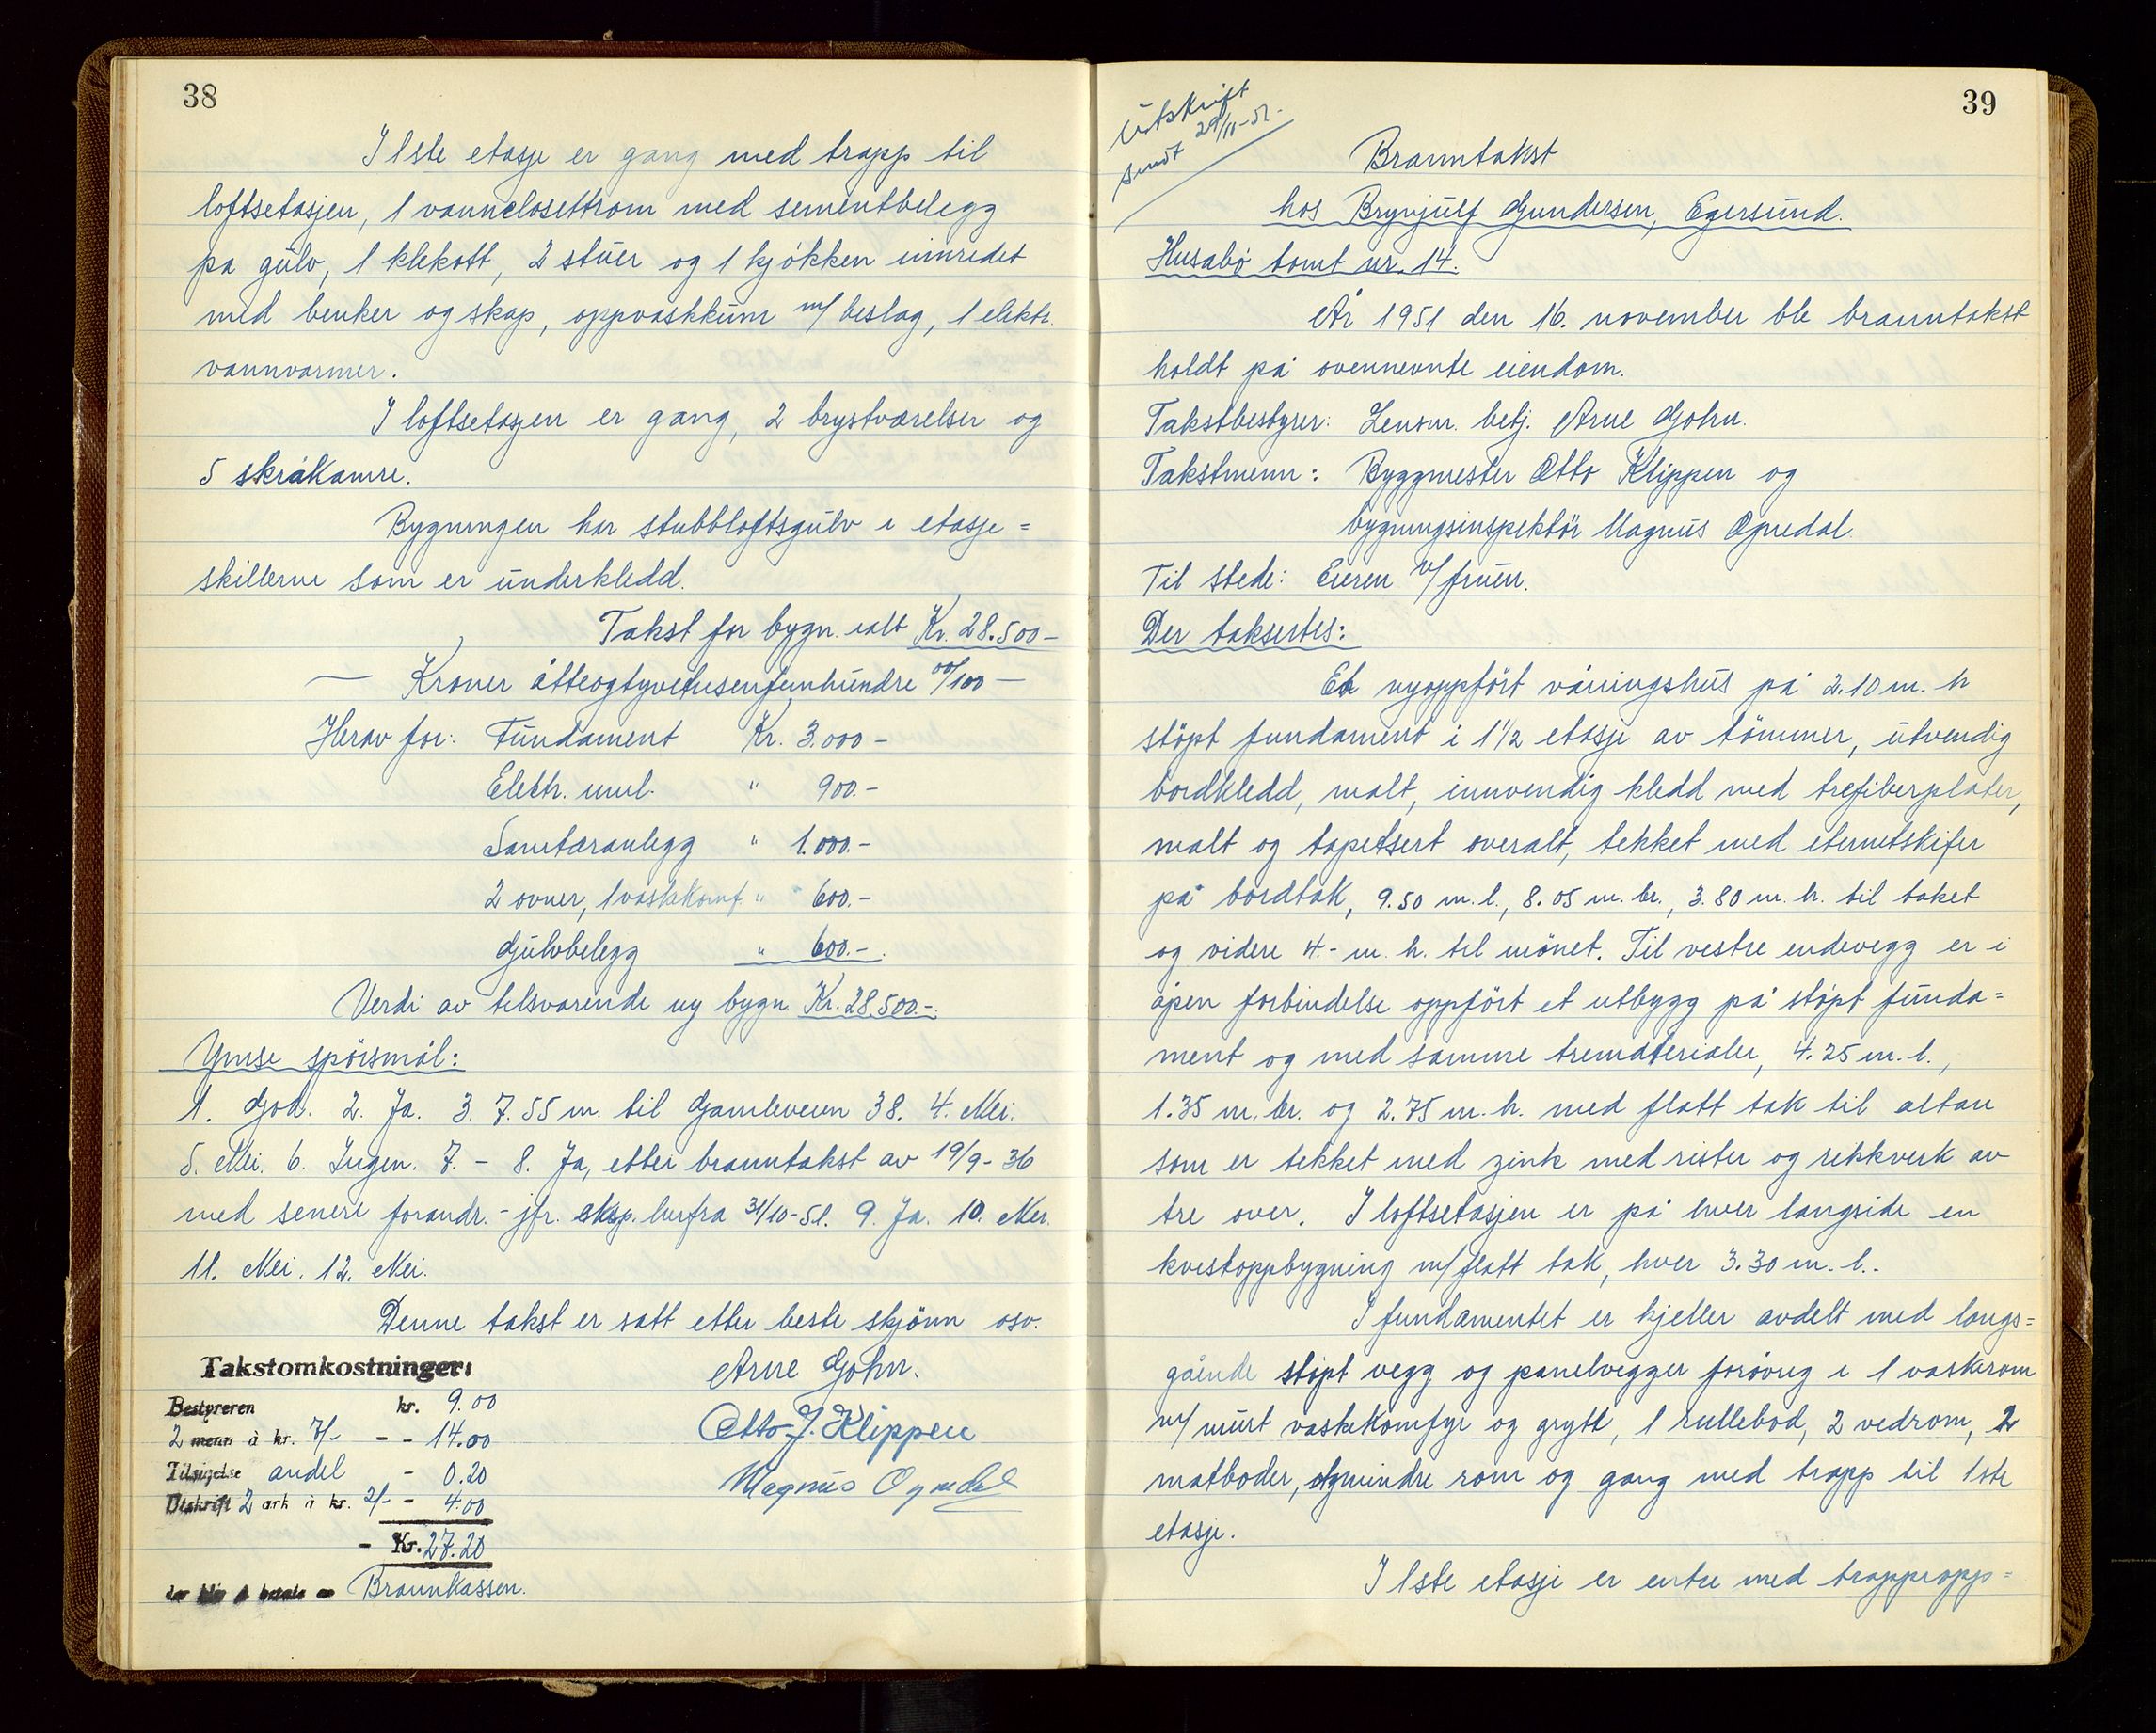 38
I 1ste etasje er gang med trapp til
loftsetasjen, 1 vannclosettrom med sementbelegg
på gulv, 1 klekott, 2 stuer og 1 kjøkken innredet
med benker og skap, oppvaskkum m/ beslag, 1 elektr.
vannvarmer.
I loftsetasjen er gang, 2 brystværelser og
5 skråkamre.
Bygningen har stubbloftsgulv i etasje=
skillerne som er underkledd.
Takst for bygn. ialt Kr. 28.500–
— Kroner åtteogtyvetusenfemhundre 00/100 —
Herav for: Fundament Kr. 3.000 –
Elektr. innl. " 900.–
Sanitæranlegg " 1.000.–
2 ovner, 1 vaskkomf. " 600.–
Gulvbelegg " 600.–
Verdi av tilsvarende ny bygn. Kr. 28.500.–
Ymse spörsmål:
1. God. 2. Ja. 3. 7.55 m. til Gamleveien 38. 4. Nei.
5. Nei. 6. Ingen. 7. – 8. Ja, etter branntakst av 19/9-36
med senere forandr. – jfr. eksp. herfra 31/10-51. 9. Ja. 10. Nei.
11. Nei. 12. Nei.
Denne takst er satt etter beste skjönn osv.
Takstomkostninger:
Bestyreren kr. 9.00
2 menn à kr. 7/- – – 14.00
Tilsigelse andel – 0.20
Utskrift 2 ark à kr. 2/- – 4.00
– Kr. 27.20
der blir å betale av Brannkassen.
Arne Gohn.
Otto J. Klippen
Magnus Opredal
39
Utskrift
sendt 29/11-51.
Branntakst
hos Brynjulf Gundersen, Egersund.
Husabø tomt nr. 14.
År 1951 den 16. november ble branntakst
holdt på ovennevnte eiendom.
Takstbestyrer: Lensm. betj. Arne Gohn.
Takstmenn: Byggmester Otto Klippen og
bygningsinspektör Magnus Opredal.
Til stede: Eieren v/ fruen.
Der taksertes:
Et nyoppfört våningshus på 2.10 m. h
stöpt fundament i 1 1/2 etasje av tömmer, utvendig
bordkledd, malt, innvendig kledd med trefiberplater,
malt og tapetsert overalt, tekket med eternitskifer
på bordtak, 9.50 m. l., 8.05 m. br., 3.80 m. h. til taket
og videre 4.- m. h. til mönet. Til vestre endevegg er i
åpen forbindelse oppfört et utbygg på stöpt funda=
ment og med samme trematerialer, 4.25 m. l.,
1.35 m. br. og 2.75 m. h. med flatt tak til altan
som er tekket med zink med rister og rekkverk av
tre over. I loftsetasjen er på hver langside en
kvistoppbygning m/ flatt tak, hver 3.30 m. l..
I fundamentet er kjeller avdelt med langs=
gående støpt vegg og panelvegger forövrig i 1 vaskerom
m/ murt vaskekomfyr og gryte, 1 rullebod, 2 vedrom, 2
matboder, og mindre rom og gang med trapp til 1ste
etasje.
I 1ste etasje er entre med trappeopp=